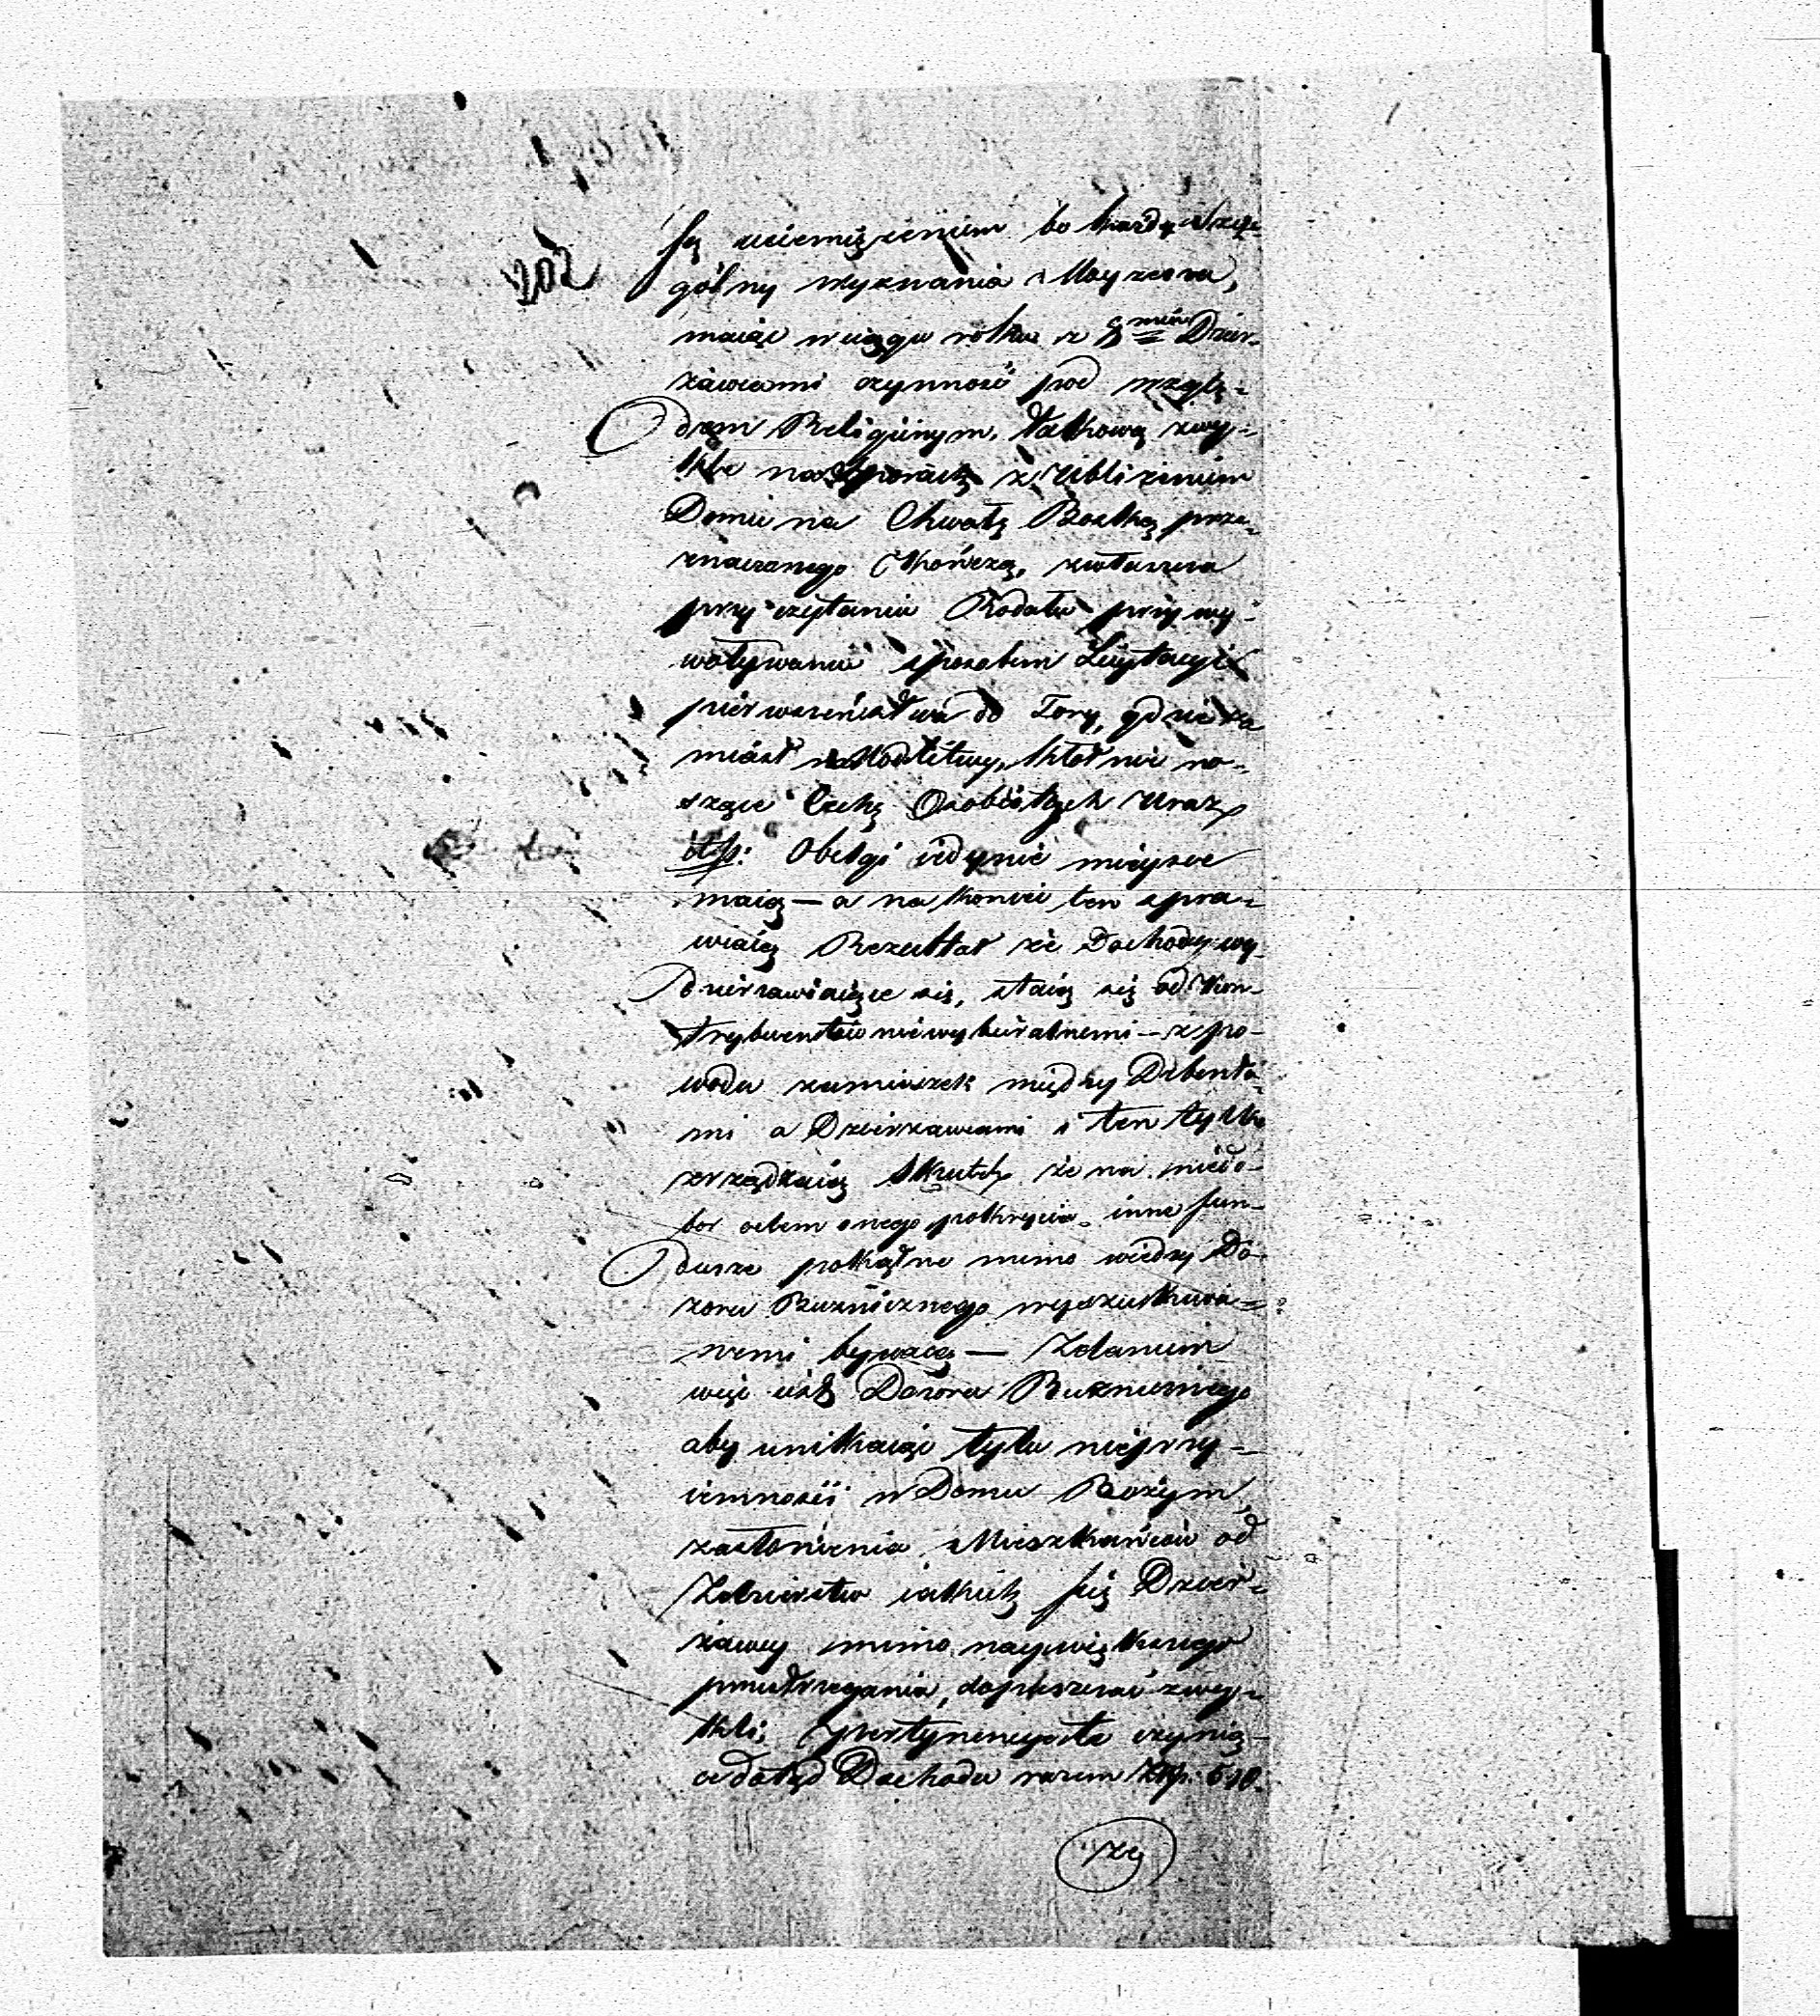 202
są uciemiężeniem bo każdy szcze-
gólny wyznania Mojżesza,
maiąc w ciągu roku z 8mia Dzier-
żawcami czynność pod wzglę-
dem Religiinym, takową zwy-
kle na sporach z Ubliżeniem
Domu na Chwałę Boską prze-
znaczonego kończą, zwłaszcza
przy czytaniu Rodału przy wy-
woływaniu sposobem Licytacyi
pierwszeństwa do Tory, gdzie za
miast Modlitwy, kłótnie no-
szące Cechę Osobistych Uraz
itp: Obelgi iedynie mieysce
maią — a na koncu ten spra-
wiaią Rezultat że Dochody wy-
dzierżawiaiące się, staią się od Kon-
trybuentów niewybieralnemi — z po-
wodu zamieszek między Debenta-
mi a Dzierżawcami i ten tylko
zrządzaią Skutek że na niedo-
bor celem onego pokrycia inne fun-
dusze pokątne mimo wiedzy Do-
zoru Bużniczego wyszukiwa-
nemi bywaią — Zdaniem
więc iest Dozoru Bużniczego
aby unikaiąc tylu nieprzy-
iemności w Domu Bożym,
zasłonienia Mieszkańców od
Zdzierstw iakich się Dzier-
żawcy mimo naywiększego
przestrzegania, dopuszczać zwy-
kli; pertynencye te czynią-
ce dotąd Dochodu razem Złp. 610.